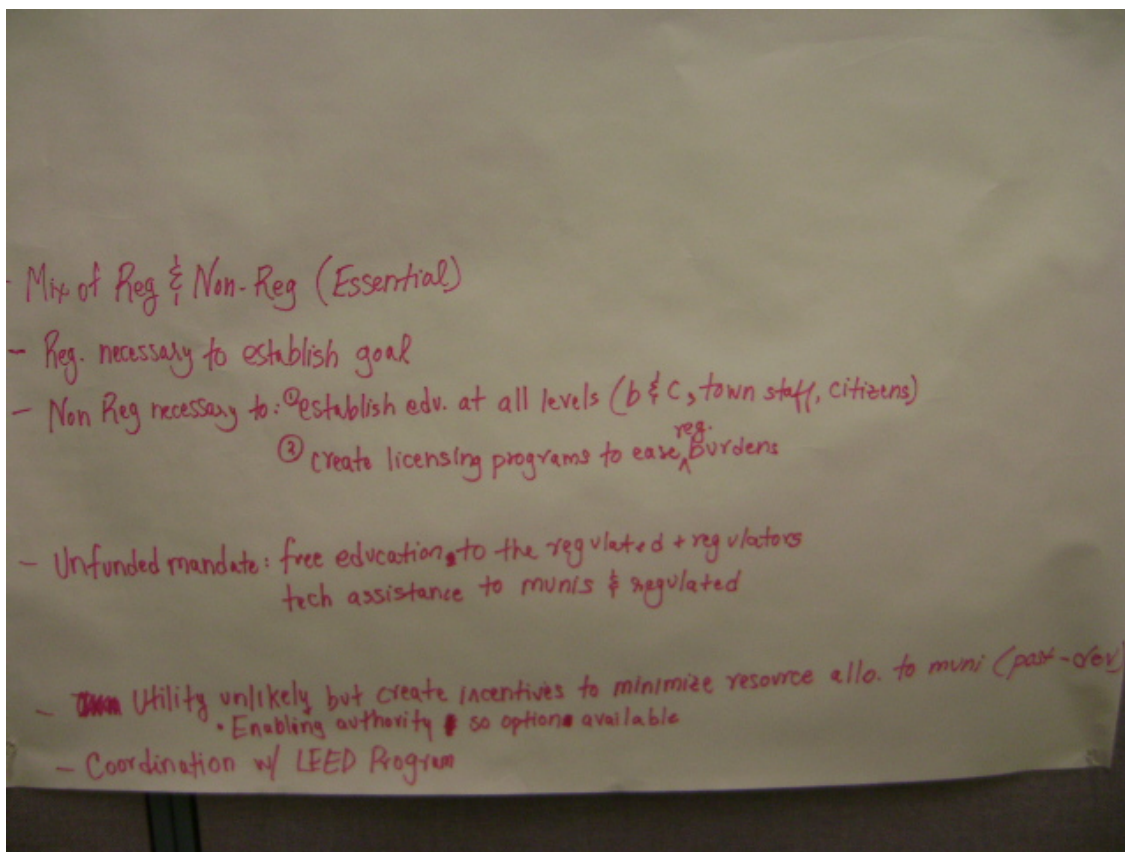 - Mix of Reg & Non-Reg (Essential)
- Reg. necessary to establish goal
- Non Reg necessary to: ① establish edu. at all levels (b & c, town staff, citizens)
② create licensing programs to ease reg. burdens
- Unfunded mandate: free education to the regulated + regulators
tech assistance to munis & regulated
- Utility unlikely but create incentives to minimize resource allo. to muni (post-dev)
• Enabling authority so option available
- Coordination w/ LEED Program